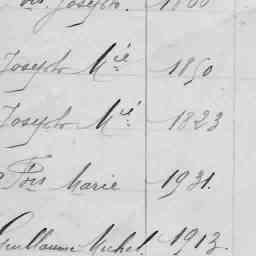 Fois Joseph. 1800
Joseph Mié 1850
Joseph Mié 1823
Fois Marie 1931.
Guillaume Michel. 1913.